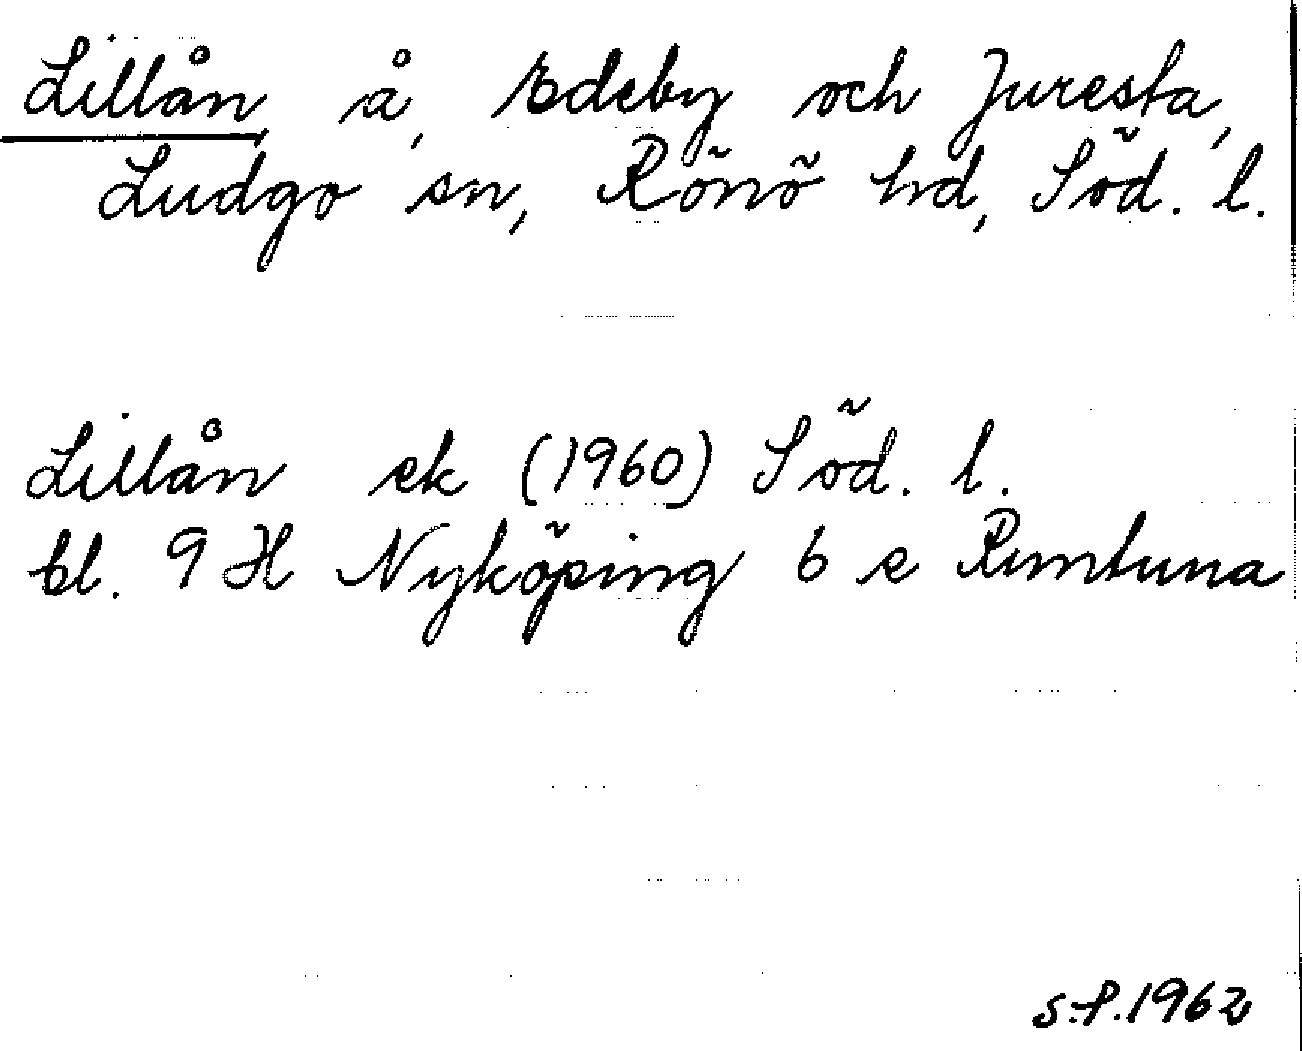 Lillån, å, Edeby och Juresta,
Ludgo sn, Rönö hd, Söd. l.
Lillån ek (1960) Söd. l.
bl. 9 H Nyköping 6 e Runtuna
S.P. 1962